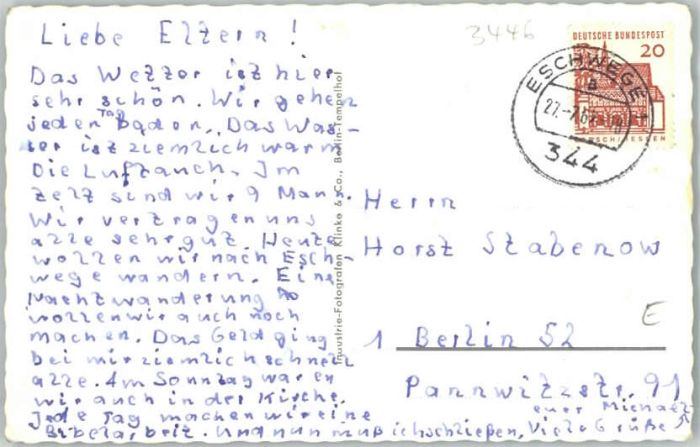 Liebe Eltern!
Das Wetter ist hier
sehr schön. Wir gehen
jeden Tag baden. Das Was-
ser ist ziemlich warm
Die Luft auch. Im
Zelt sind wir 9 Mann.
Wir vertragen uns
alle sehr gut. Heute
wollen wir nach Esch-
wege wandern. Eine
Nachtwanderung
wollen wir auch noch
machen. Das Geld ging
bei mir ziemlich schnell
alle. Am Sonntag waren
wir auch in der Kirche.
Jede Tag machen wir eine
Bibelarbeit. Und nun muß ich schließen, Viele Grüße
euer Michael
Industrie-Fotografen Klinke & Co., Berlin-Tempelhof
3446
DEUTSCHE BUNDESPOST
20
LORSCH/HESSEN
ESCHWEGE
a
27.-7.67
344
Herrn
Horst Stabenow
E
1 Berlin 52
Pannwitzstr. 91